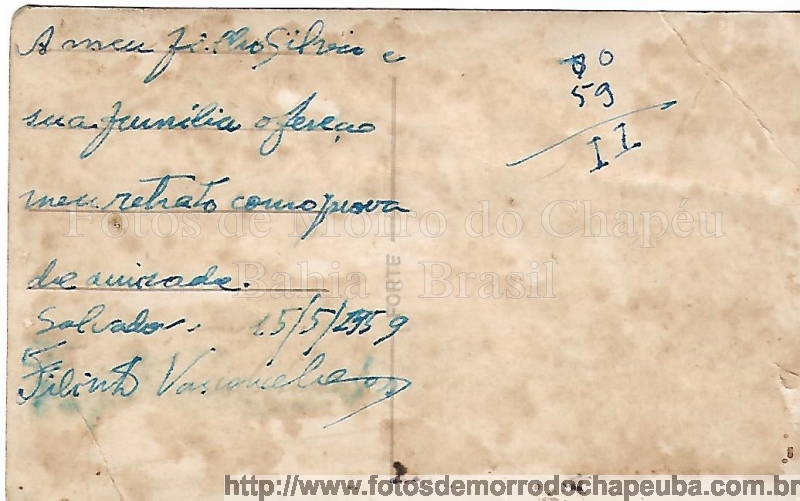 A meu filho Silvio e
sua familia ofereço
meu retrato como prova
de amizade.
Salvador, 15/5/1959
Filinto Vasconcelos
70
59
II
PORTE
Fotos de Morro do Chapéu
Bahia Brasil
http://www.fotosdemorrodochapeuba.com.br